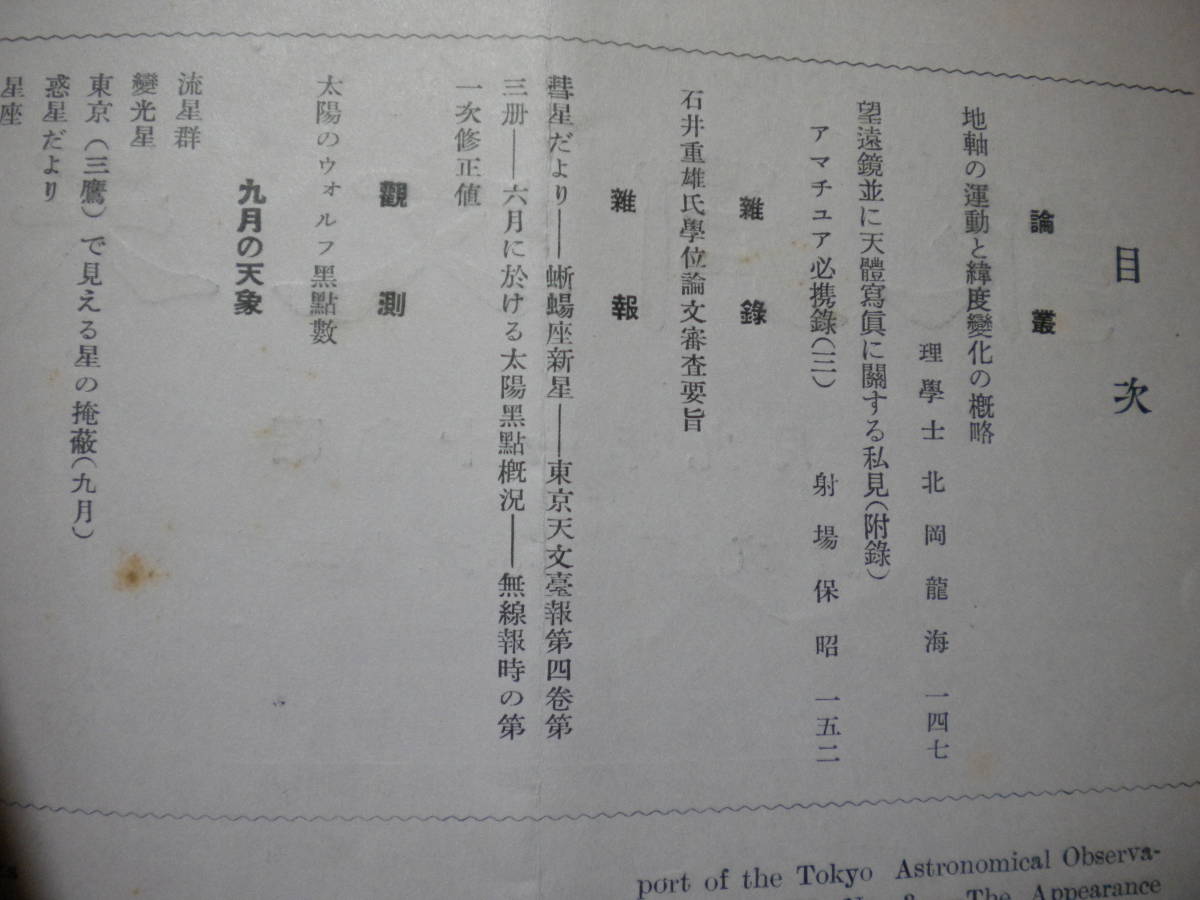 目次
論叢
地軸の運動と緯度變化の槪略
理學士 北岡龍海 一四七
望遠鏡並に天體寫眞に關する私見(附錄)
アマチュア必携錄(三) 射場保昭 一五二
雜錄
石井重雄氏學位論文審査要旨
雜報
彗星だより——蜥蜴座新星——東京天文臺報第四卷第
三册——六月に於ける太陽黑點槪況——無線報時の第
一次修正値
觀測
太陽のウォルフ黑點數
九月の天象
流星群
變光星
東京(三鷹)で見える星の掩蔽(九月)
惑星だより
星座
port of the Tokyo Astronomical Observa-
The Appearance